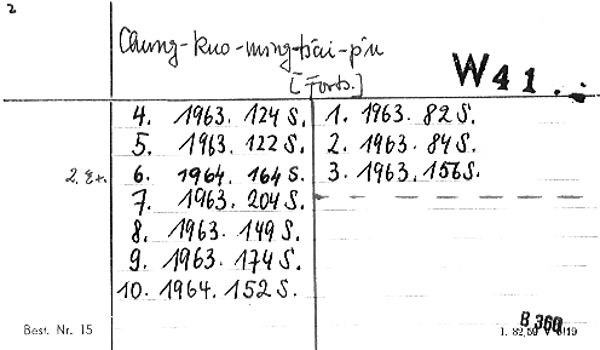 2
Chung-kuo-ming-ts'ai-p'u
[Forts.]
W41
4. 1963. 124 S.
5. 1963. 122 S.
2. Ex. 6. 1964. 164 S.
7. 1963. 204 S.
8. 1963. 149 S.
9. 1963. 174 S.
10. 1964. 152 S.
1. 1963. 82 S.
2. 1963. 84 S.
3. 1963. 156 S.
Best. Nr. 15
B 360